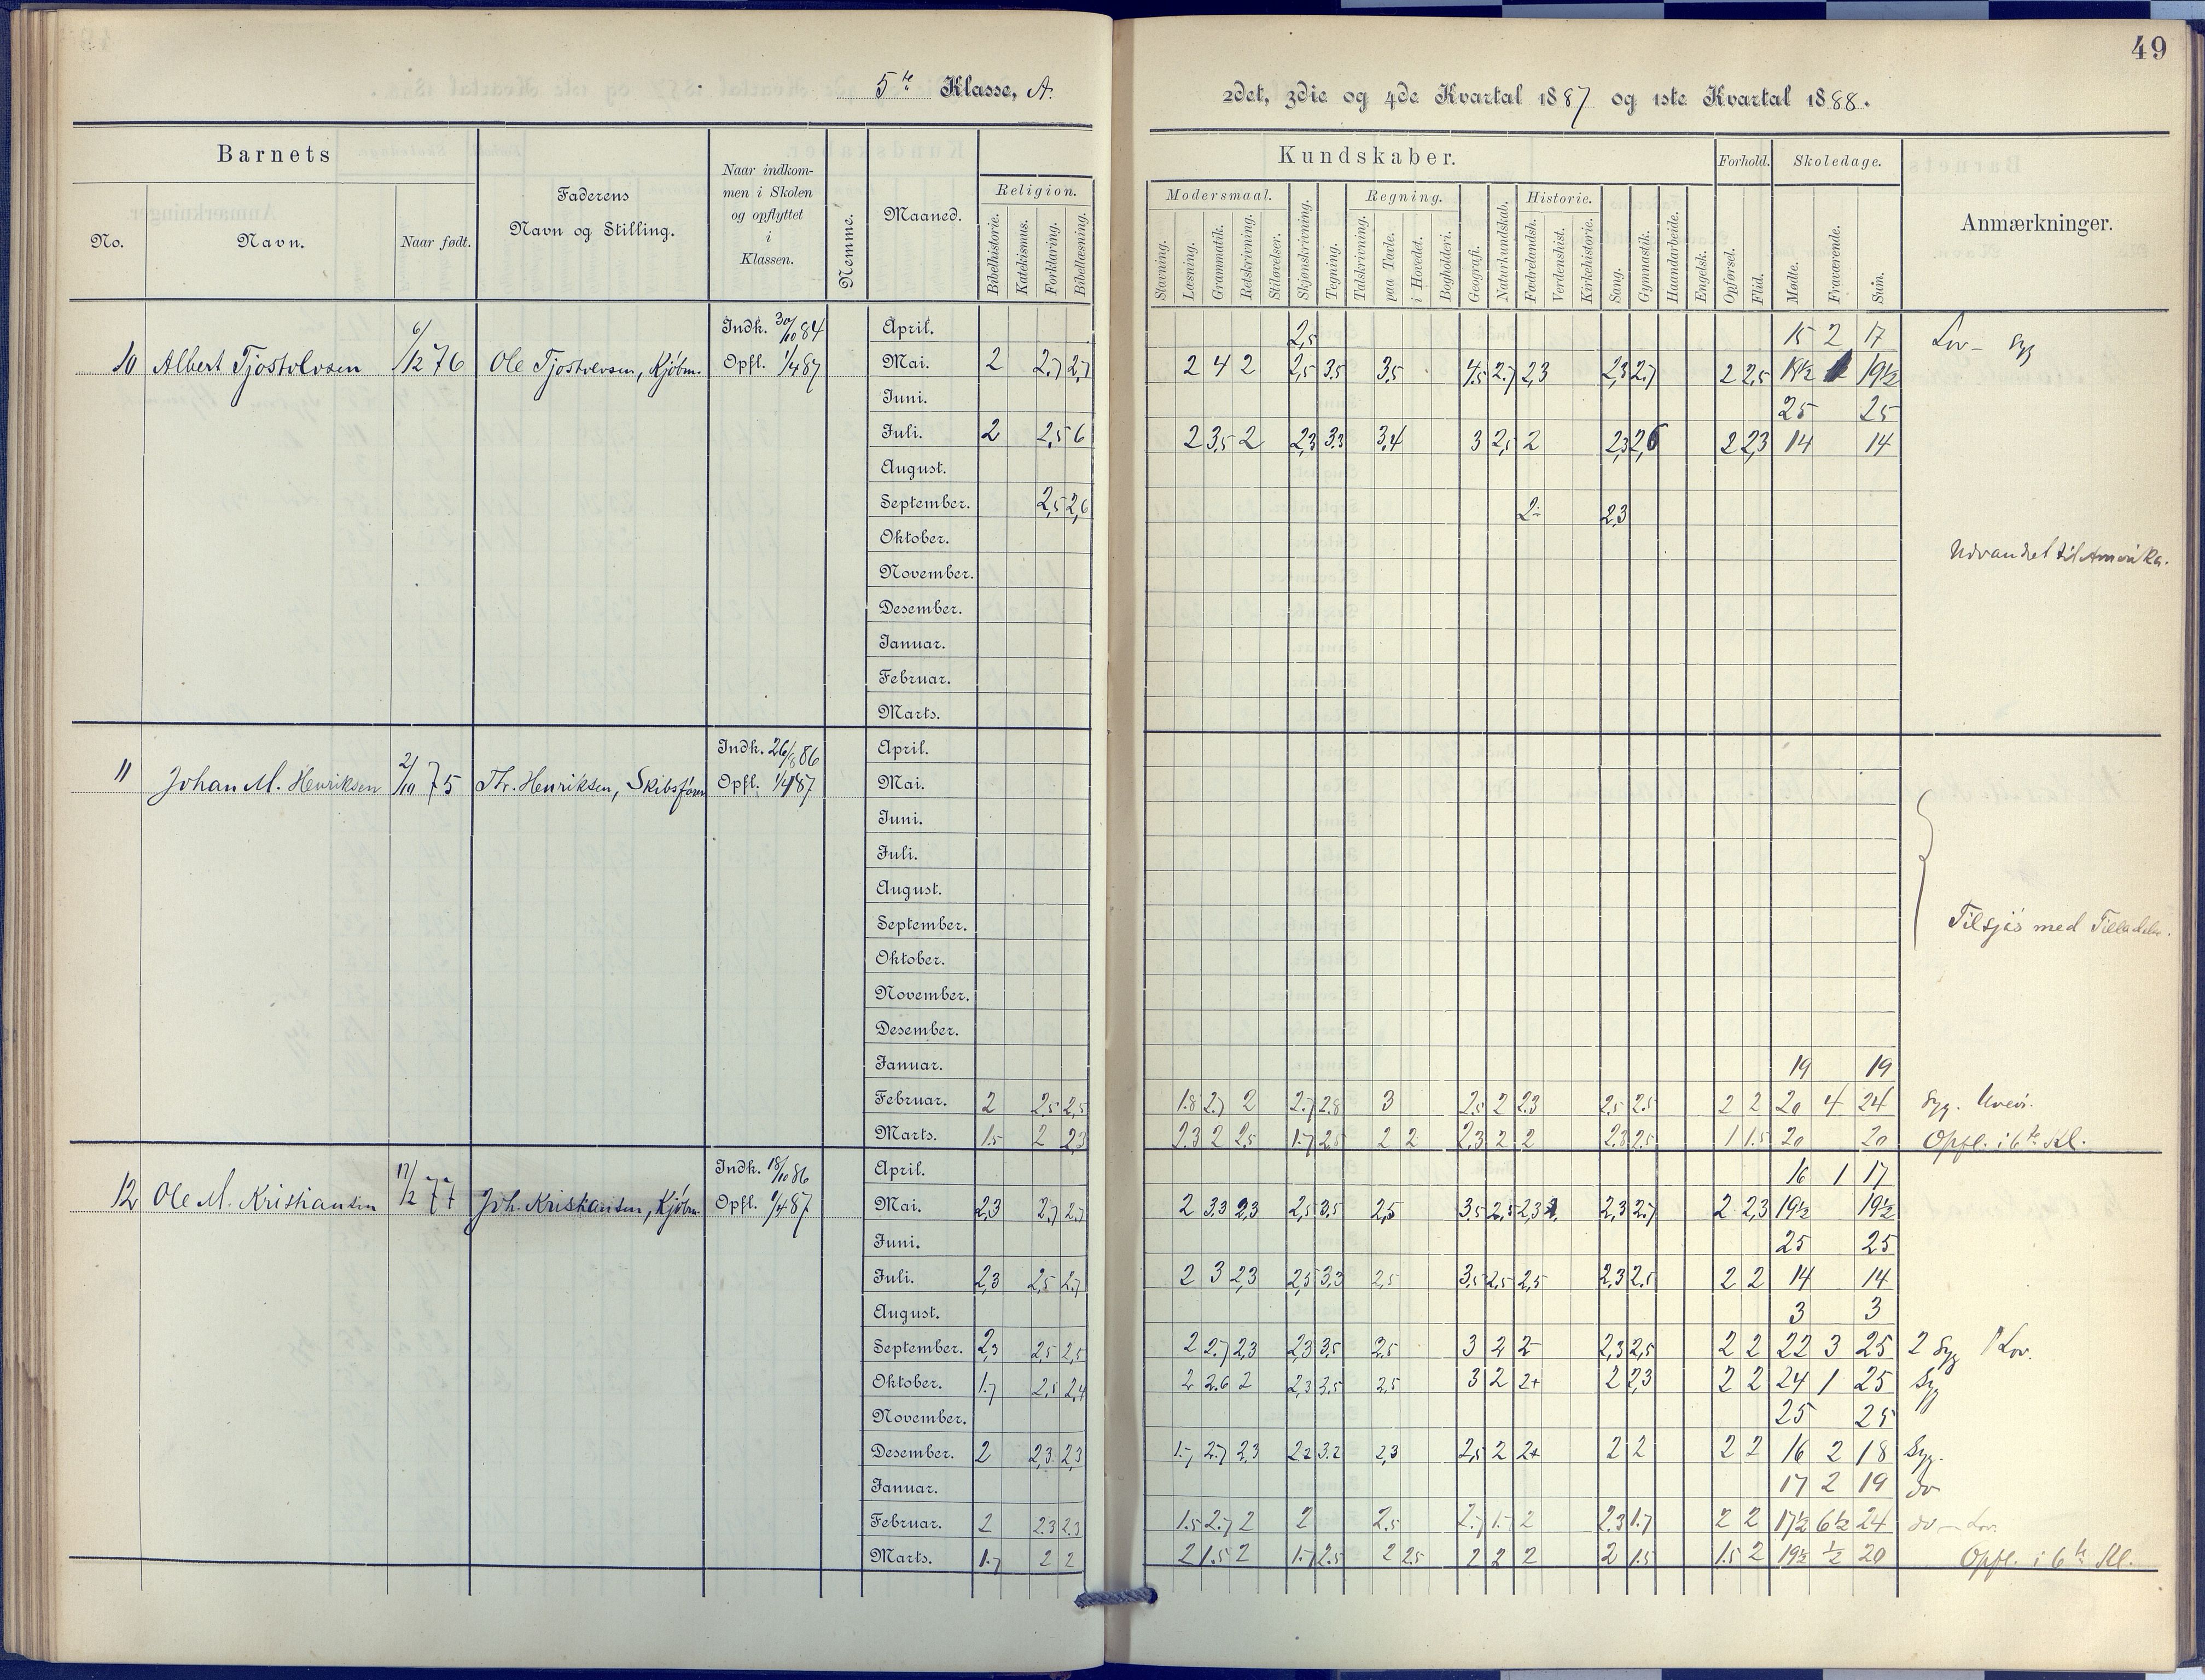 49
5te Klasse, A.
2det, 3die og 4de Kvartal 1887 og 1ste Kvartal 1888.
Barnets
No.
Navn.
Naar født.
Faderens
Navn og Stilling.
Naar indkom-
men i Skolen
og opflyttet
i
Klassen.
Nemme.
Maaned.
Kundskaber.
Religion.
Bibelhistorie.
Katekismus.
Forklaring.
Bibellæsning.
Modersmaal.
Stavning.
Læsning.
Grammatik.
Retskrivning.
Stiløvelser.
Skjønskrivning.
Tegning.
Regning.
Talskrivning.
paa Tavle.
i Hovedet.
Bogholderi.
Geografi.
Naturkundskab.
Historie.
Fædrelandsh.
Verdenshist.
Kirkehistorie.
Sang.
Gymnastik.
Haandarbeide.
Engelsk.
Forhold.
Opførsel.
Flid.
Skoledage.
Mødte.
Fraværende.
Sum.
Anmærkninger.
10 Albert Tjostolvsen 6/12 76 Ole Tjostolvsen, Kjøbm. Indk. 30/10 84
Opfl. 1/4 87
April. 2,5 15 2 17 Lov - Syg
Mai. 2 2.7 2,7 2 4 2 2,5 3.5 3,5 4,5 2.7 2,3 2,3 2.7 2 2,5 18½ 1 19½
Juni. 25 25
Juli. 2 2,5 6 2 3,5 2 2,3 3.3 3,4 3 2,5 2 2,3 2,6 2 2,3 14 14
August.
September. 2,5 2,6 2- 2,3
Oktober.
Udvandret til Amerika.
November.
Desember.
Januar.
Februar.
Marts.
11 Johan M. Henriksen 2/10 75 Th. Henriksen, Skibsfører Indk. 26/8 86
Opfl. 1/4 87
April.
Mai.
Juni.
Juli.
August.
September. Tilsjøs med Tilladelse.
Oktober.
November.
Desember.
Januar. 19 19
Februar. 2 2.5 2,5 1.8 2.7 2 2.7 2.8 3 2.5 2 2.3 2.5 2.5 2 2 20 4 24 Syg.
Marts. 1.5 2 2,3 2.3 2 2,5 1.7 2.5 2 2 2,3 2 2 2.3 2.5 1 1.5 20 20 Opfl. i 6te Kl.
12 Ole M. Kristiansen 17/2 77 Joh. Kristiansen, Kjøbm. Indk. 18/10 86
Opfl. 1/4 87
April. 16 1 17
Mai. 2,3 2,7 2.7 2 3.3 2,3 2,5 3.5 2,5 3.5 2,5 2,3 2,3 2.7 2 2,3 19½ 19½
Juni. 25 25
Juli. 2,3 2,5 2.7 2 3 2,3 2,5 3,3 2,5 3,5 2,5 2,5 2,3 2,5 2 2 14 14
August. 3 3
September. 2,3 2,5 2,5 2 2.7 2,3 2,3 3,5 2.5 3 2 2- 2,3 2,5 2 2 22 3 25 2 Syg 1 Lov.
Oktober. 1.7 2,5 2,4 2 2.6 2 2,3 3.5 2,5 3 2 2+ 2 2,3 2 2 24 1 25 Syg
November. 25 25
Desember. 2 2,3 2,3 1.7 2.7 2,3 2.2 3.2 2,3 2,5 2 2+ 2 2 2 2 16 2 18 Syg.
Januar. 17 2 19 do
Februar. 2 2.3 2.3 1.5 2.7 2 2 2.5 2.7 1.7 2 2.3 1.7 2 2 17½ 6½ 24 do - Lov.
Marts. 1.7 2 2 2 1.5 2 1.7 2.5 2 2.5 2 2 2 2 1.5 1.5 2 19½ ½ 20 Opfl. i 6te Kl.